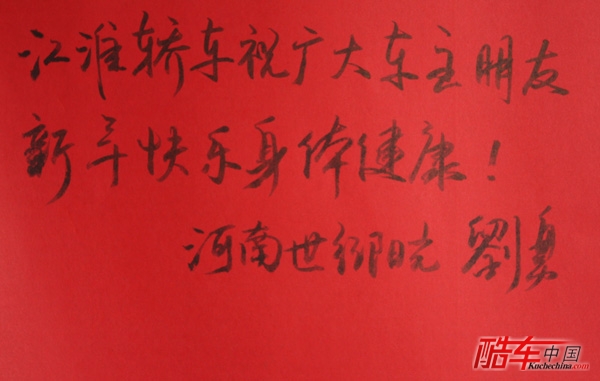 江淮轿车祝广大车主朋友
新年快乐身体健康!
河南世纲晓 劉勇
酷车中国
Kuchechina.com